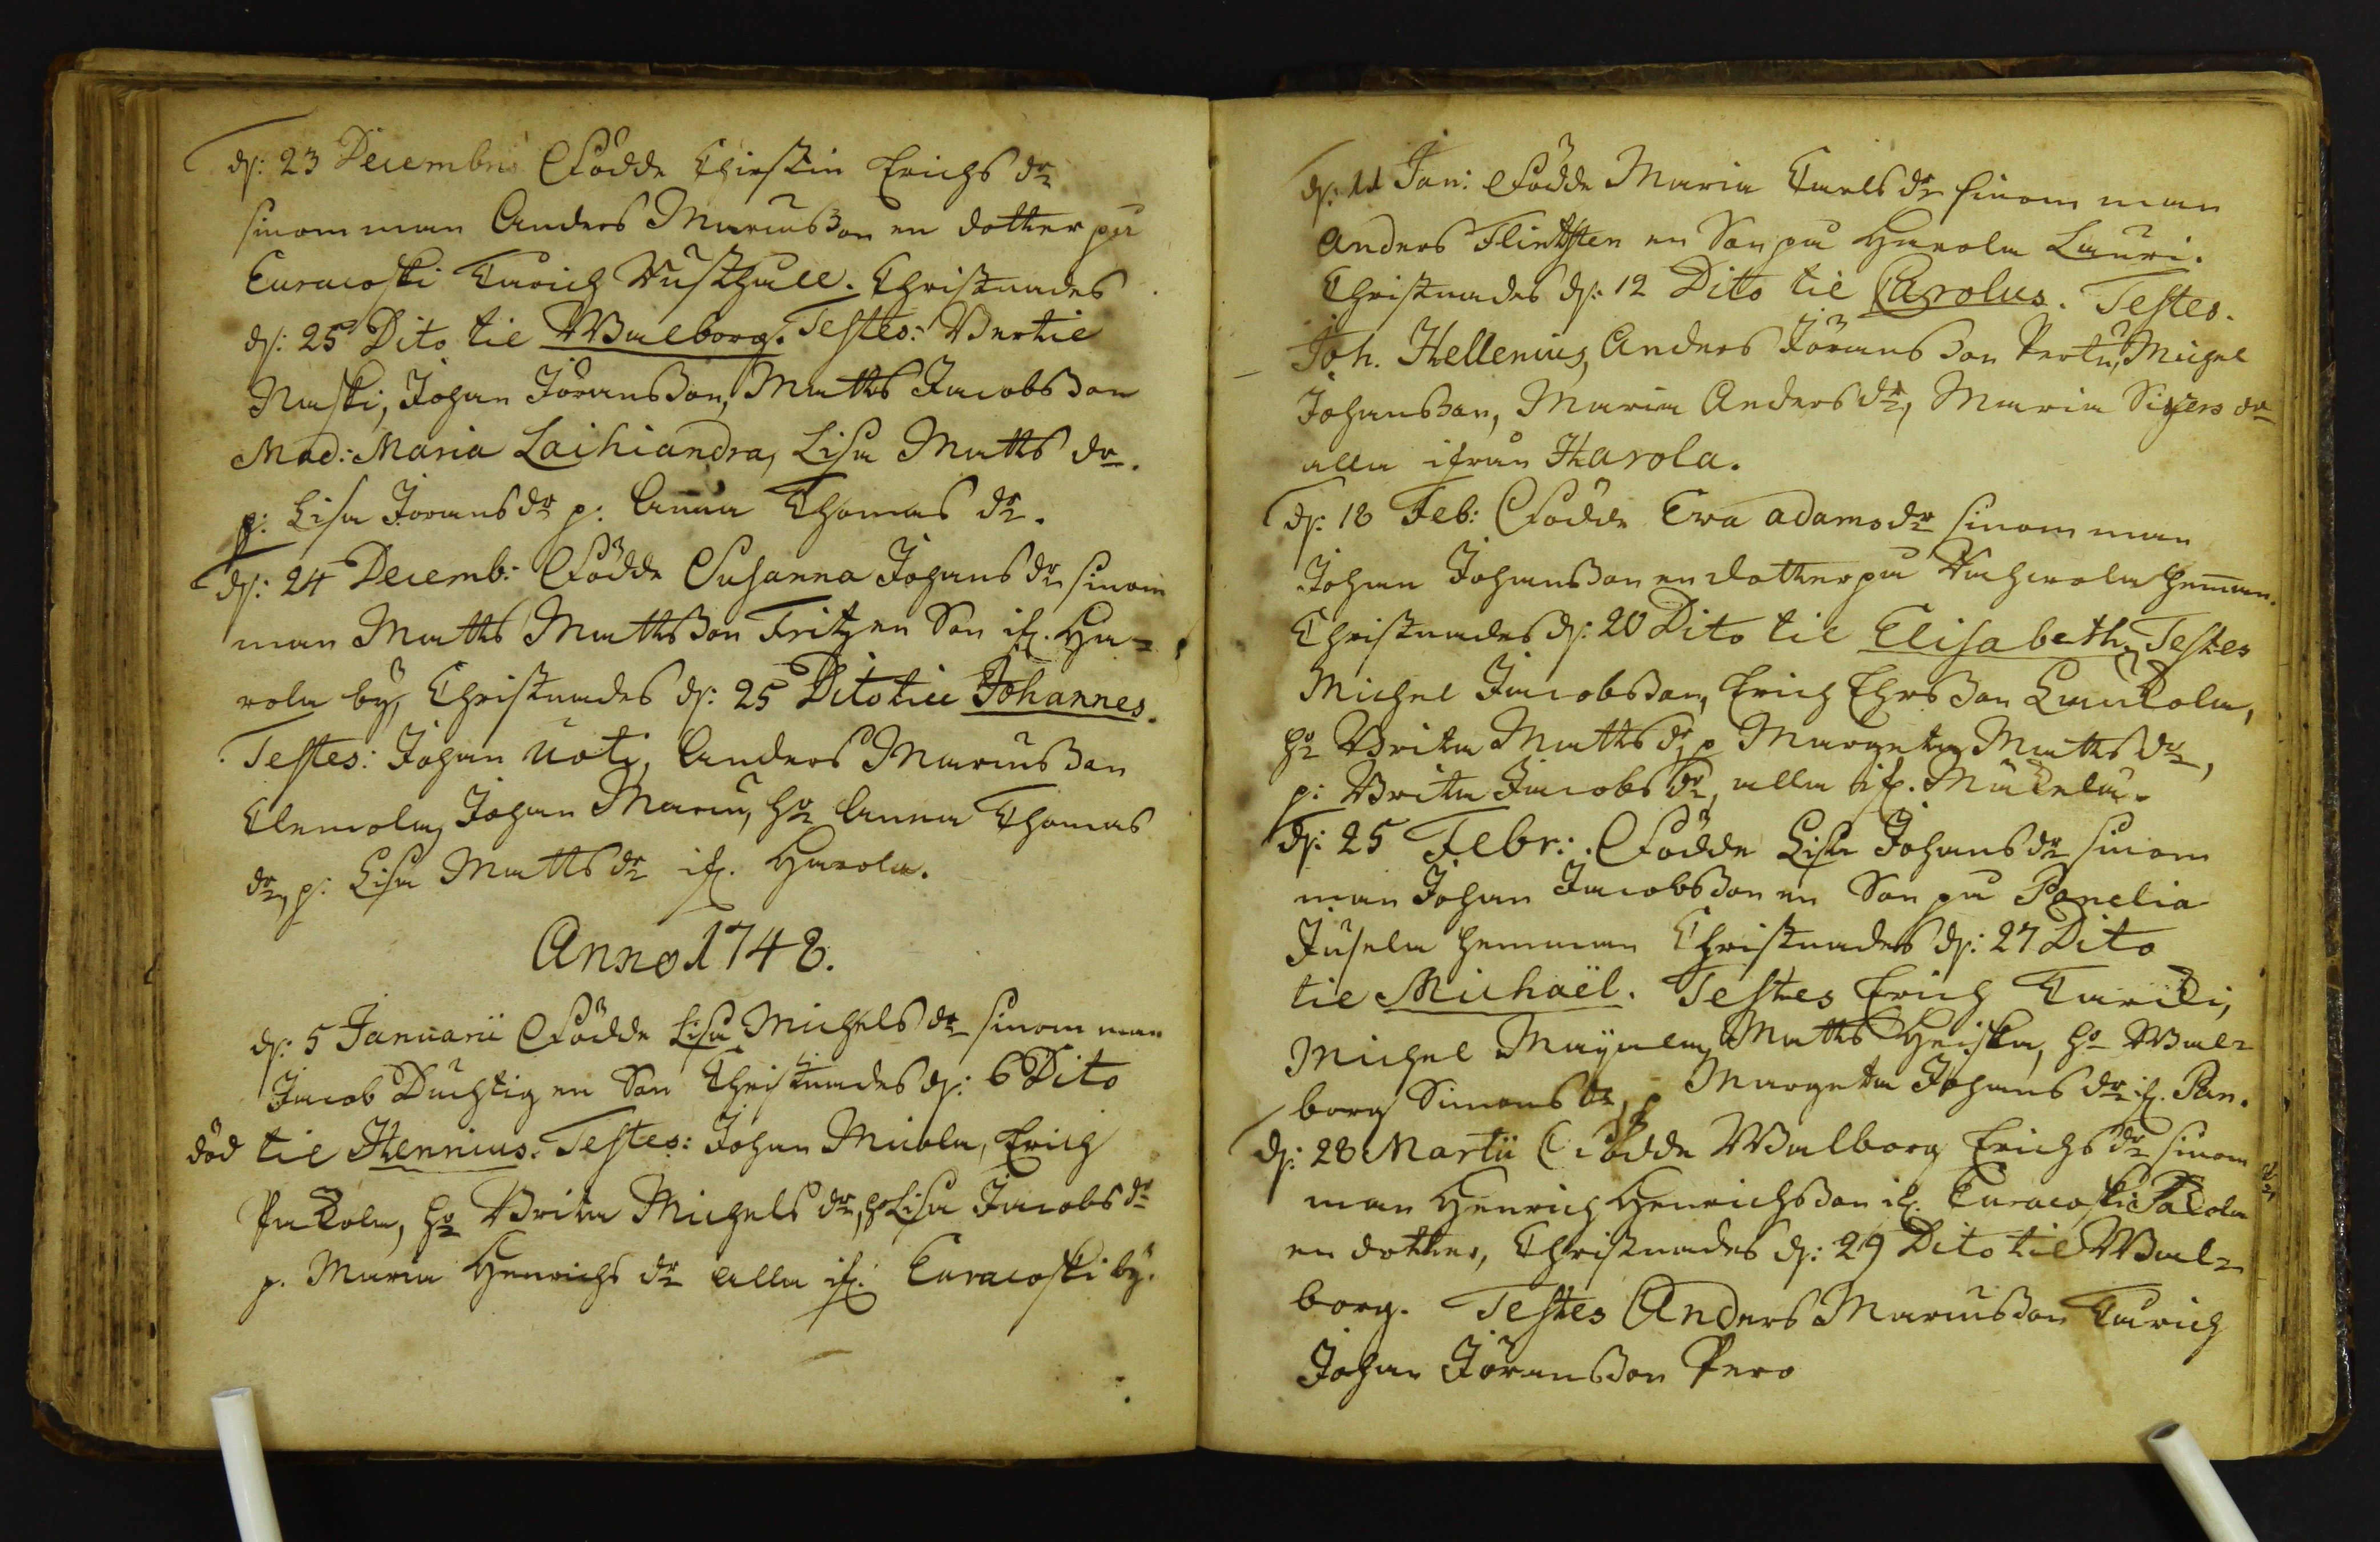 d: 23 Decembris Födde Chirstin Erichs dr
sinom man Anders Mariusson en dotter på
Euracoski Tarich Rusthåll. Christnades
d: 25 Dito til Walborg. Testes: Bertil
Naski, Johan Jöransson, Matts Jacobsson
Mad: Maria Laihiandra, Lisa Matts dr.
p: Lisa Jöransdr p: Anna Thomas dr.
d: 24 Decemb: Födde Susanna Johans dr sinom
man Matts Mattsson Fritz en Son if. Ha-
rola by, Christnades d: 25 Dito til Johannes.
Testes: Johan Uoti, Anders Mariusson
Clemola, Johan Mariu, h: Anna Thomas
dr, p: Lisa Matts dr if. Harola.
Anno 1748.
d: 5 Januarii Födde Lisa Michels dr sinom man
Jacob Duchtig en Son Christnades d: 6 Dito
död til Hennius. Testes: Johan Micola, Erich
Pakola, h: Brita Michels dr, p Lisa Jacobs dr
p. Maria Henrichs dr alla if. Euracoski by.
d: 11 Jan: Födde Maria Carls dr sinom man
Anders Flinthsten en Son på Harola Lauri.
Christnades d: 12 Dito til Carolus. Testes.
Joh. Hellenius, Anders Jöransson Pertu, Michel
Johansson, Maria Anders dr, Maria Sigers dr
alla ifrån Harola.
d: 18 Feb: Födde Ewa adams dr sinom man
Johan Johansson en dotter på hemman.
Christnades d: 20 Dito til Elisabeth. Testes
Michel Jacobsson, Erich Ersson Laukola,
h: Brita Matts dr p Margeta Matts dr,
p: Brita Jacobs dr, alla if. Mäkelä.
d: 25 Febr: Födde Lisa Johans dr sinom
man Johan Jacobsson en Son på Panelia
Jusela hemman Christnades d: 27 Dito
til Michaël. Testes Erich Tariki,
Michel Matts Heiska, h: Wal-
borg Simons dr, p Margeta Johans dr if. Pan.
d: 28 Martii Födde Walborg Erichs dr sinom
man Henrich Henrichsson if. Euracoski Pakola
en dotter, Christnades d: 29 Dito til Wal-
borg. Testes Anders Mariusson Tarich
Johan Jöransson Pero